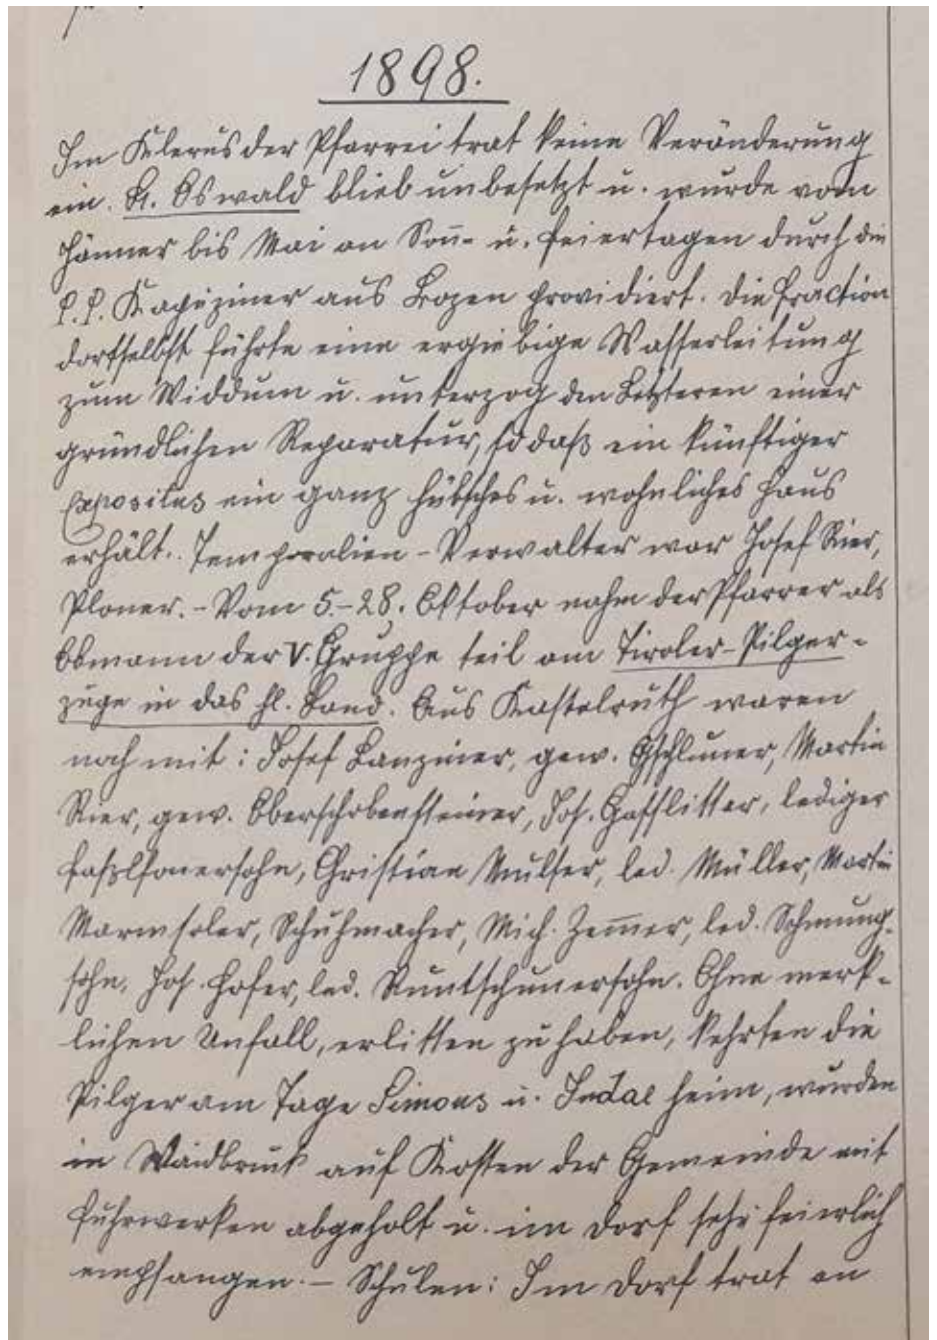 1898.
Im Klerus der Pfarrei trat keine Veränderung
ein. St. Oswald blieb unbesetzt u. wurde vom
Jänner bis Mai an Son̄- u. Feiertagen durch die
P. P. Kapuziner aus Bozen providiert. Die Fraction
dortselbst führte eine ergiebige Wasserleitung
zum Widdum u. unterzog den Letzteren einer
gründlichen Reparatur, so daß ein künftiger
Expositus ein ganz hübsches u. wohnliches Haus
erhält. Temporalien-Verwalter war Josef Rier,
Ploner. - Vom 5.-28. Oktober nahm der Pfarrer als
Obmann der V. Gruppe teil am Tiroler-Pilger-
zuge in das hl. Land. Aus Kastelruth waren
noch mit: Josef Lanziner, gew. Gschluner, Martin
Rier, gew. Oberschobensteiner, Jos. Gasslitter, lediger
Christian Mulser, led. Müller, Martin
Marmsoler, Schuhmacher, Mich. Zem̄er, led.
sohn, Jos. Hofer, led. Runtschunersohn. Ohne merk-
lichen Unfall, erlitten zu haben, kehrten die
Pilger am Tage Simons u. Judae heim, wurden
in Waidbruck auf Kosten der Gemeinde mit
Fuhrwerken abgeholt u. im Dorf sehr feierlich
empfangen. - Schulen: Im Dorf trat an